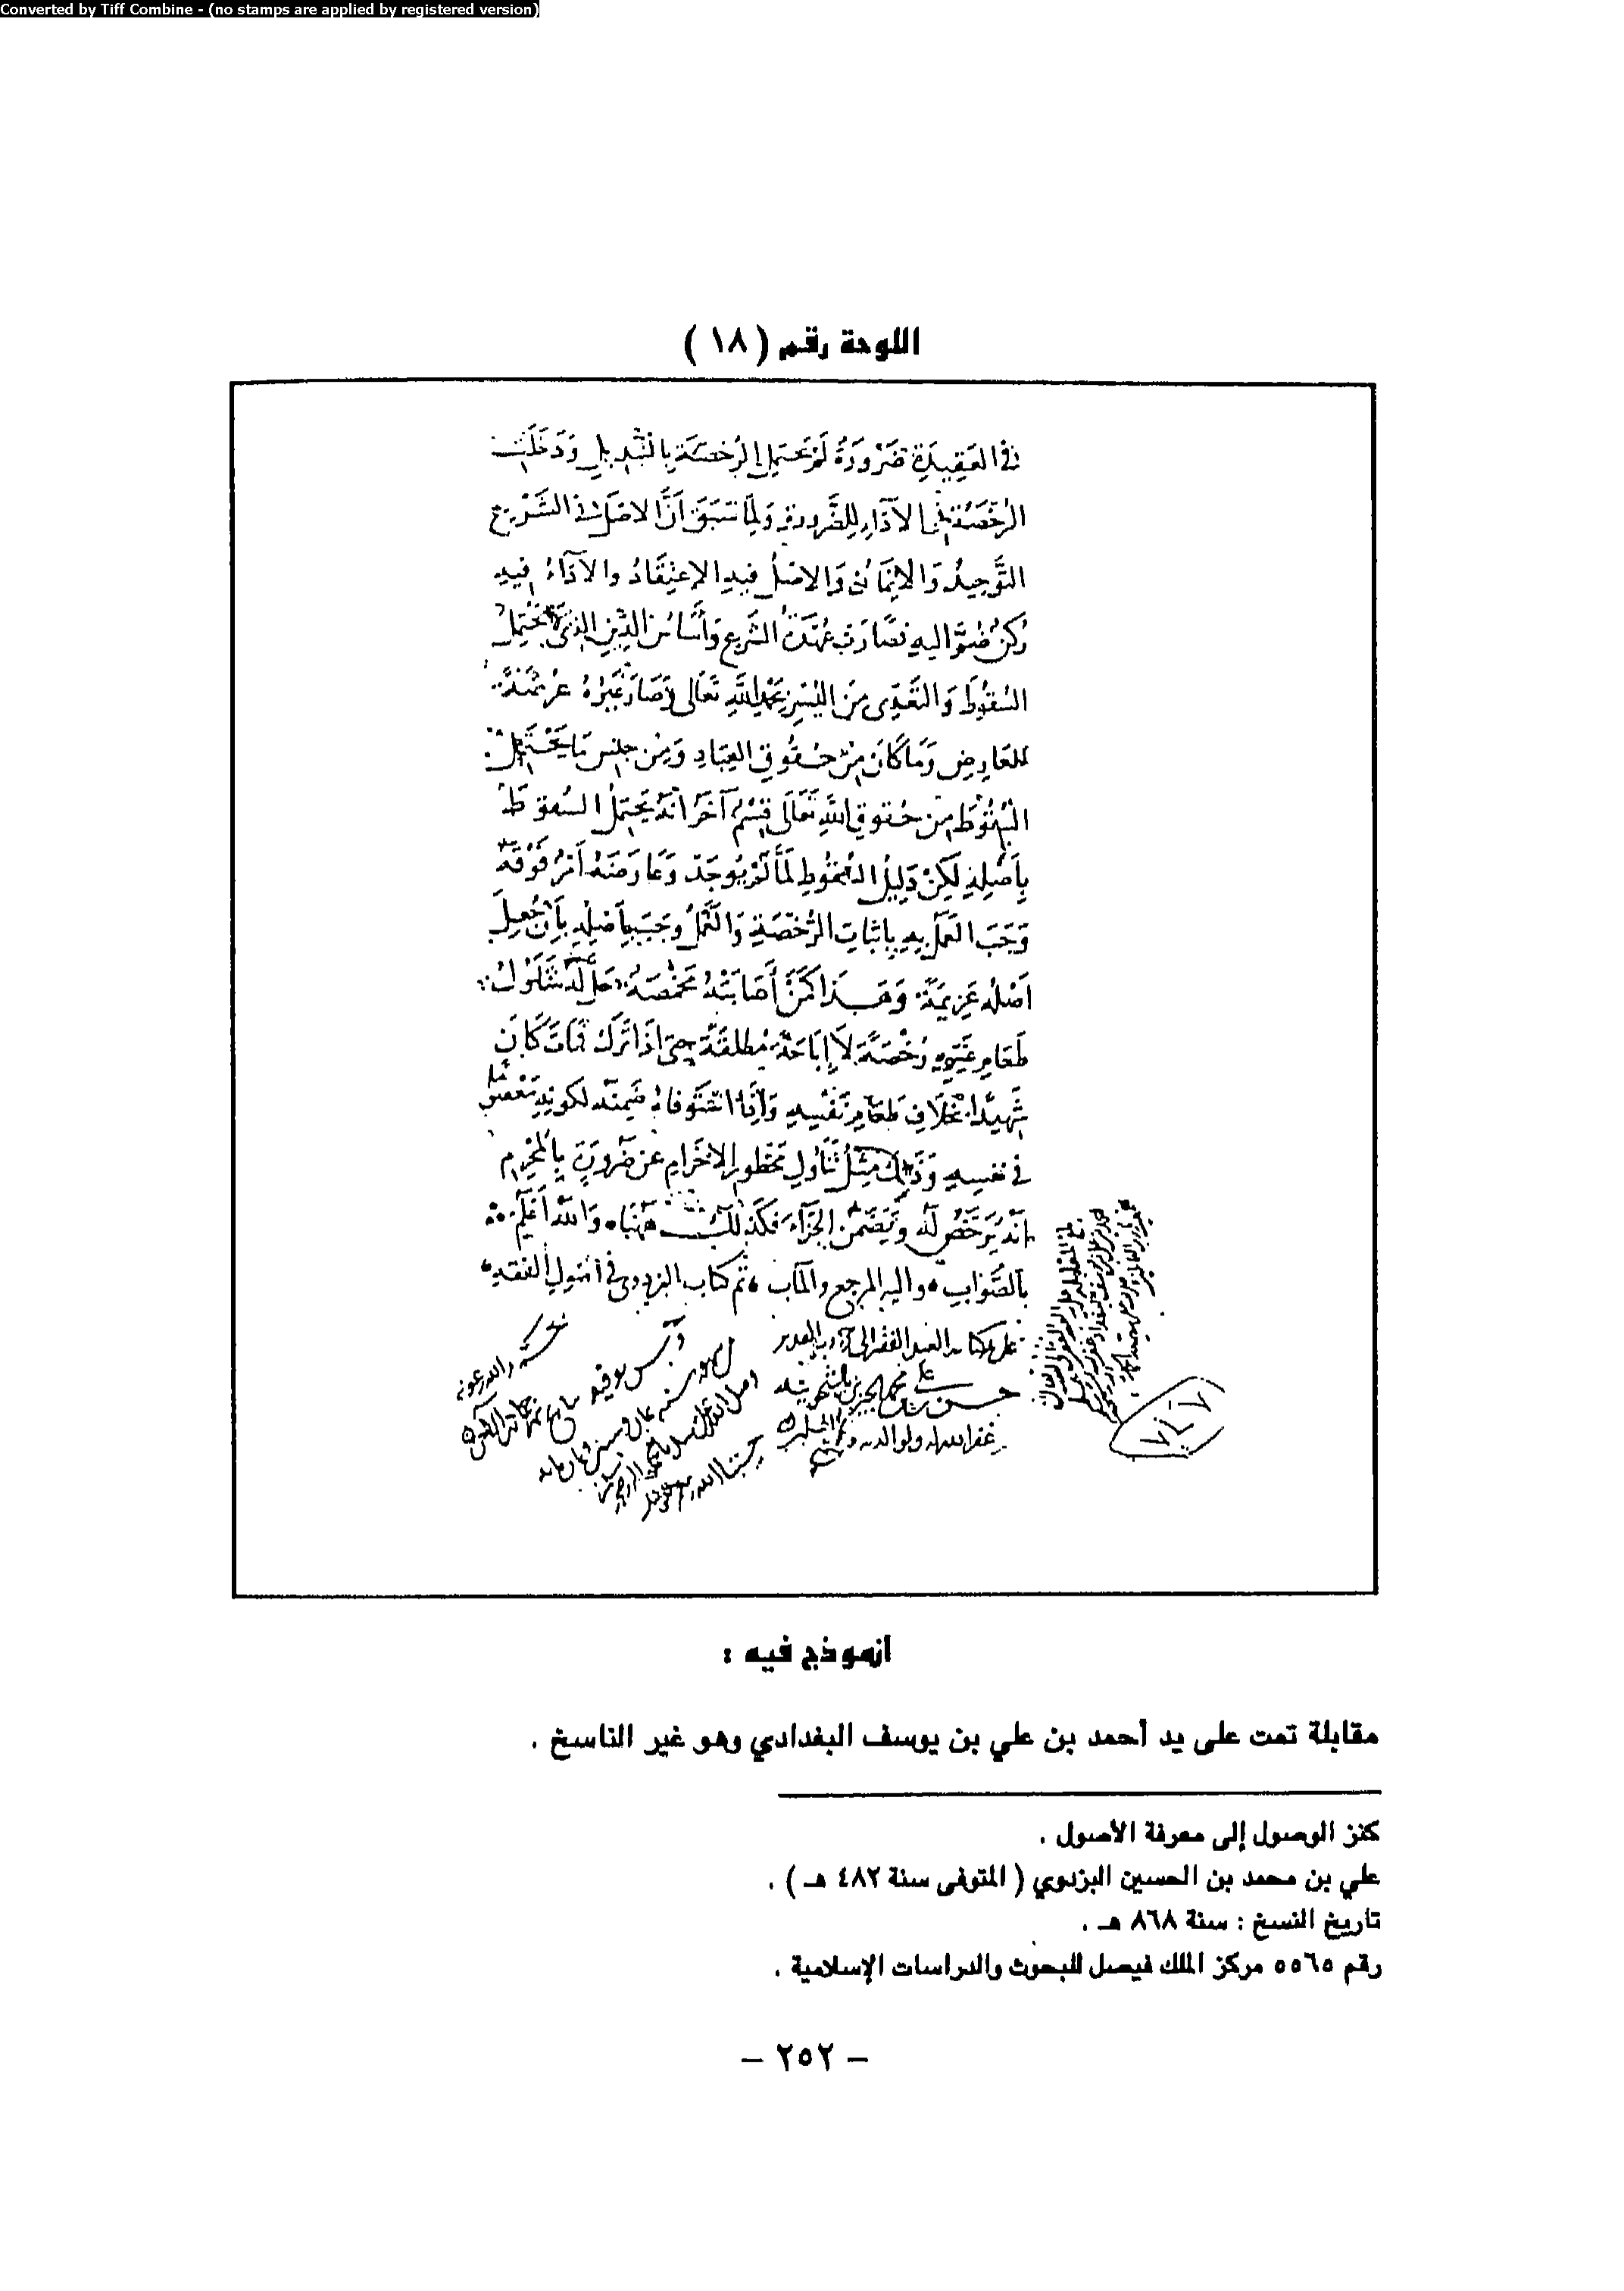 Converted by Tiff Combine - (no stamps are applied by registered version)
اللوحة رقم ( ١٨ )
في العَقِيدَةِ ضَرُورَةً لَمْ يحتمل الرُخصَة بالتبديل وَدَخَلَت
الرُخصَة في الأدَاءِ لِلضَّرورة وَلِمَا سَبَقَ أَنَّ الاصل في الشَّرِيع
التَّوحِيدُ وَالايمَان وَالاصلُ فيه الإعتِقَادُ والأدَاءُ فيه
رُكنٌ ضُمَّ اليه فصَارَت عُهدَة الشرع وأساس الدِّين الذي لا يحتمل
السُقُوطَ وَالتعَدِّى مِنَ اليُسر بحمد اللهِ تعَالى وصَارَ غيرُهُ عزيمة
للعَارِضِ وَمَا كَانَ مِن حُقُوقِ العِبَادِ وَمِن جِنس مَا يَحتَمِل
السُقُوطَ مِن حُقوقِ اللهِ تَعَالَى قِسمٌ آخَرُ انهُ يَحتمِلُ السُقوطَ
بِأَصلِهِ لكِنْ دَلِيلُ السُقُوطِ لمَّا لَم يُوجَد وَعَارَضَهُ أَمرٌ فَوقَهُ
وَجَبَ العَمَل بِهِ بِاثبَاتِ الرُّخصَةِ وَالعَمَلُ وجَبَ بِأصلِهِ بِأن جُعِلَ
أصلُه عَزِيمَة وَهَذا كَمَن أصَابَتهُ مَخمَصَة حَلّ لَهُ تنَاوُل
طَعَامِ غَيرِهِ رُخصَةً لَا إِبَاحَةً مُطلَقَة حتى اذَا تَرَك فمَات كَانَ
شَهِيدًا بخلَافِ طَعَامِ نَفسِهِ وَاذَا استَوفَاهُ ضَمِنَه لكونِهِ مَعصُومًا
في نفسِهِ وَذلِكَ مِثلُ تَنَاوُلِ مَحظورِ الاحرَام عن ضَرورَةٍ بالمُحرِم
انه يَرَخَّصُ لَهُ وَيَضمَنُ الجَزَاءَ فكَذلِكَ هَهُنَا وَاللهُ أعلَم
بالصَّوَابِ واليه المرجع والمآب تم كتاب البزدوى في أصُولِ الفقه
على يد كاتبه العبد الفقير الى الله ربه القدير
حسن بن على
غفر الله له ولوالديه
٧
انموذج فيه :
مقابلة تمت على يد أحمد بن علي بن يوسف البغدادي وهو غير الناسخ .
كنز الوصول إلى معرفة الأصول .
علي بن محمد بن الحسين البزدوي ( المتوفى سنة ٤٨٢ هـ ) .
تاريخ النسخ : سنة ٨٦٨ هـ .
رقم ٥٥٦٥ مركز الملك فيصل للبحوث والدراسات الإسلامية .
– ٢٥٢ –